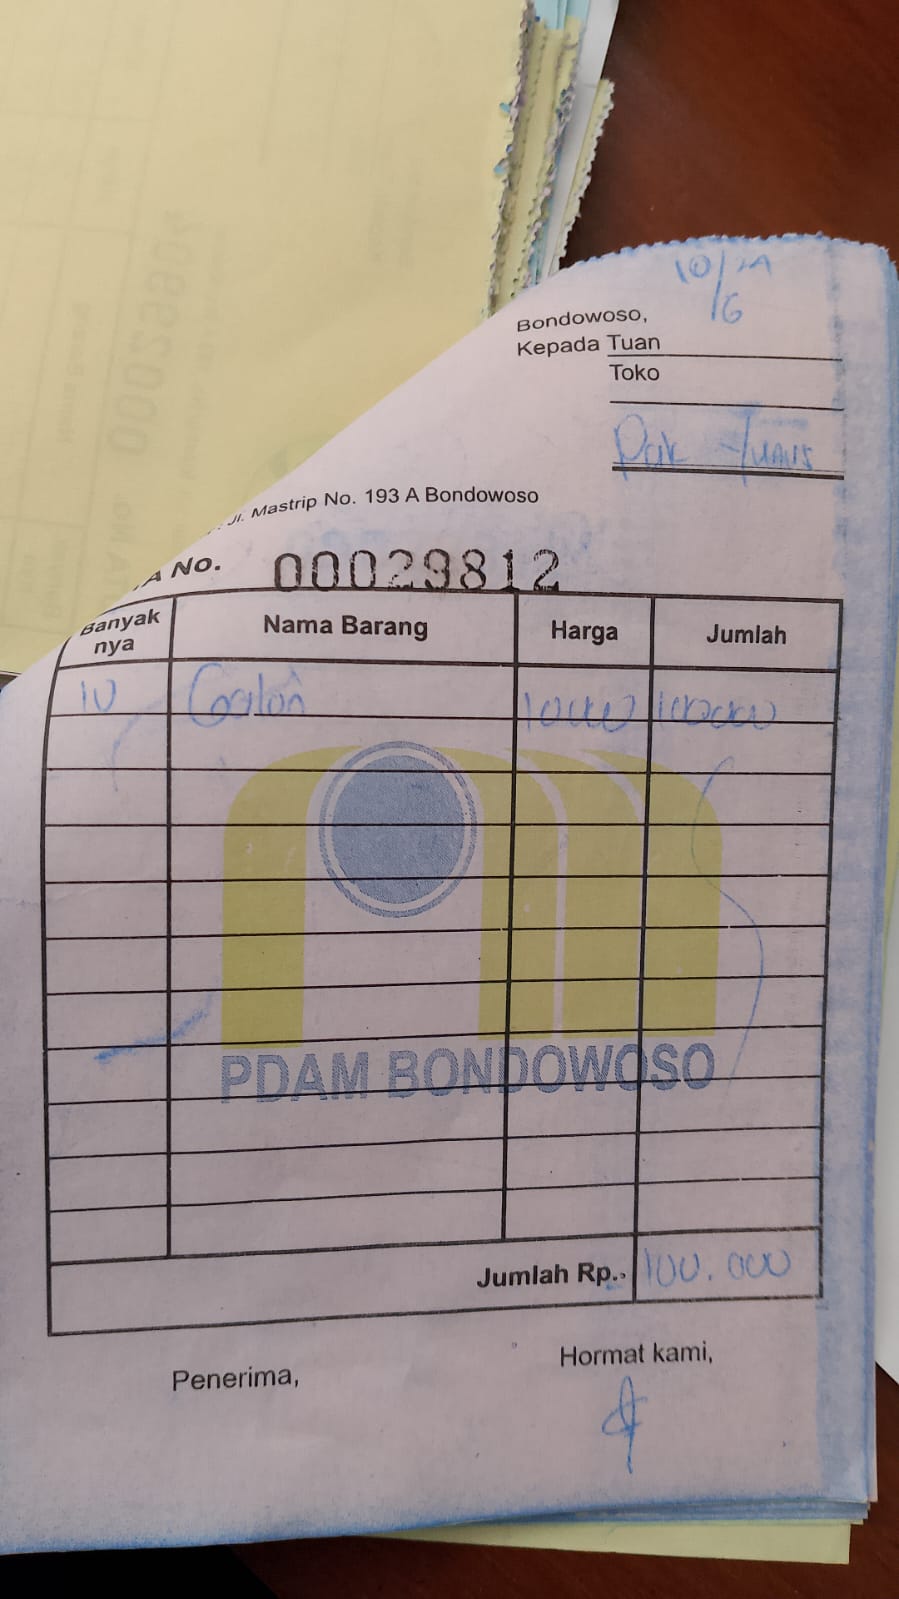 10/24
6
Bondowoso,
Kepada Tuan
Toko
Pak
Jl. Mastrip No. 193 A Bondowoso
A No. 00029812
Banyak nya Nama Barang Harga Jumlah
10 Galon 10000 100000
PDAM BONDOWOSO
Jumlah Rp. 100.000
Penerima,
Hormat kami,